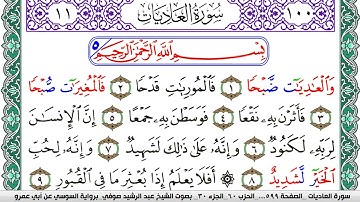 ١١ سورة العاديات ١٠٠
بِسْمِ اللَّهِ الرَّحْمَٰنِ الرَّحِيمِ
وَالْعَادِيَات ضَّبْحًا ١ فَالْمُورِيَاتِ قَدْحًا ٢ فَالْمُغِيرَات صُّبْحًا
٣ فَأَثَرْنَ بِهِ نَقْعًا ٤ فَوَسَطْنَ بِهِ جَمْعًا ٥ إِنَّ الْإِنسَانَ
لِرَبِّهِ لَكَنُودٌ ٦ وَإِنَّهُ عَلَىٰ ذَٰلِكَ لَشَهِيدٌ ٧ وَإِنَّهُ لِحُبِّ
الْخَيْر لَّشَدِيدٌ ٨ أَفَلَا يَعْلَمُ إِذَا بُعْثِرَ مَا فِي الْقُبُورِ ٩
سورة العاديات . الصفحة ٥٩٩ . الحزب ٦٠ الجزء ٣٠ . بصوت الشيخ عبد الرشيد صوفي برواية السوسي عن أبي عمرو